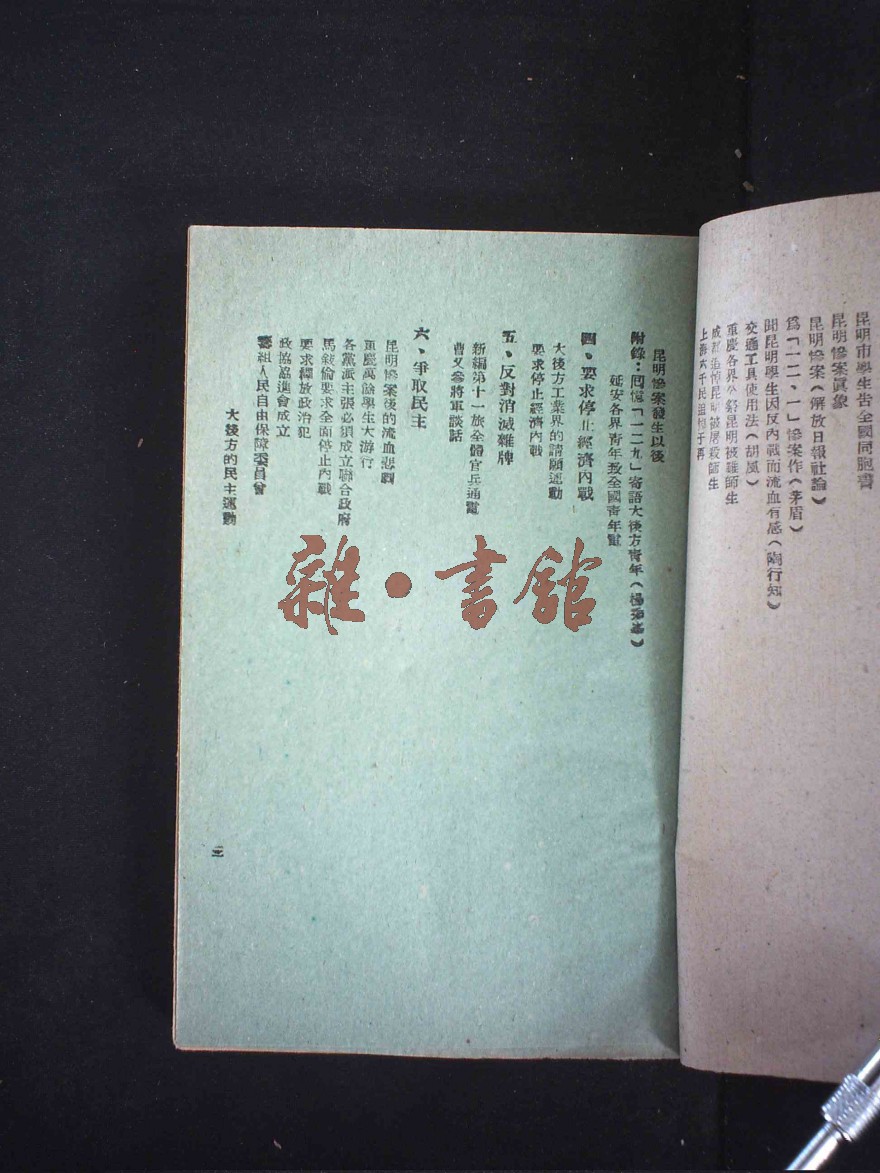 昆明市學生告全國同胞書
昆明慘案眞象
昆明慘案(解放日報社論)
爲「一二、一」慘案作(茅盾)
聞昆明學生因反內戰而流血有感(陶行知)
交通工具使用法(胡風)
重慶各界公祭昆明被難師生
成都追悼昆明被屠殺師生
上海六千民追悼于再
昆明慘案發生以後
附錄:回憶「一二九」寄語大後方靑年(楊)
延安各界靑年致全國靑年電
四、要求停止經濟內戰
大後方工業界的請願運動
要求停止經濟內戰
五、反對消滅雜牌
新編第十一旅全體官兵通電
曹又參將軍談話
六、爭取民主
昆明慘案後的流血悲劇
重慶萬餘學生大游行
各黨派主張必須成立聯合政府
馬敍倫要求全面停止內戰
要求釋放政治犯
政協協進會成立
籌組人民自由保障委員會
大後方的民主運動
三
雜·書館